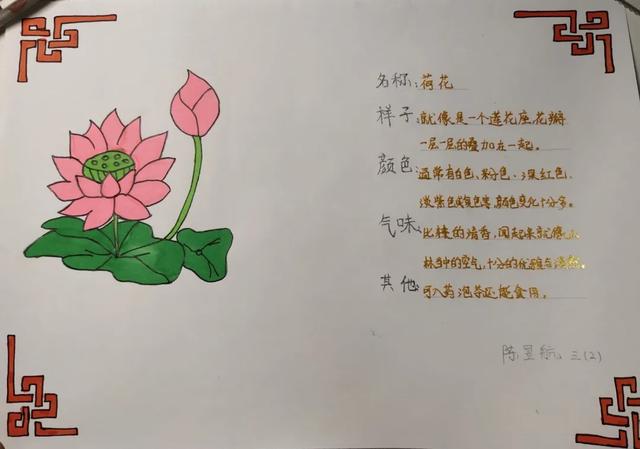 名称:荷花
样子:就像是一个莲花座,花瓣
一层一层的叠加在一起。
颜色:通常有白色、粉色、深红色、
淡紫色或黄色等,颜色变化十分多。
气味:比较的清香,闻起来就像山
林中的空气,十分的优雅与清
其他:可入药泡茶还能食用。
陈昱航 三(2)